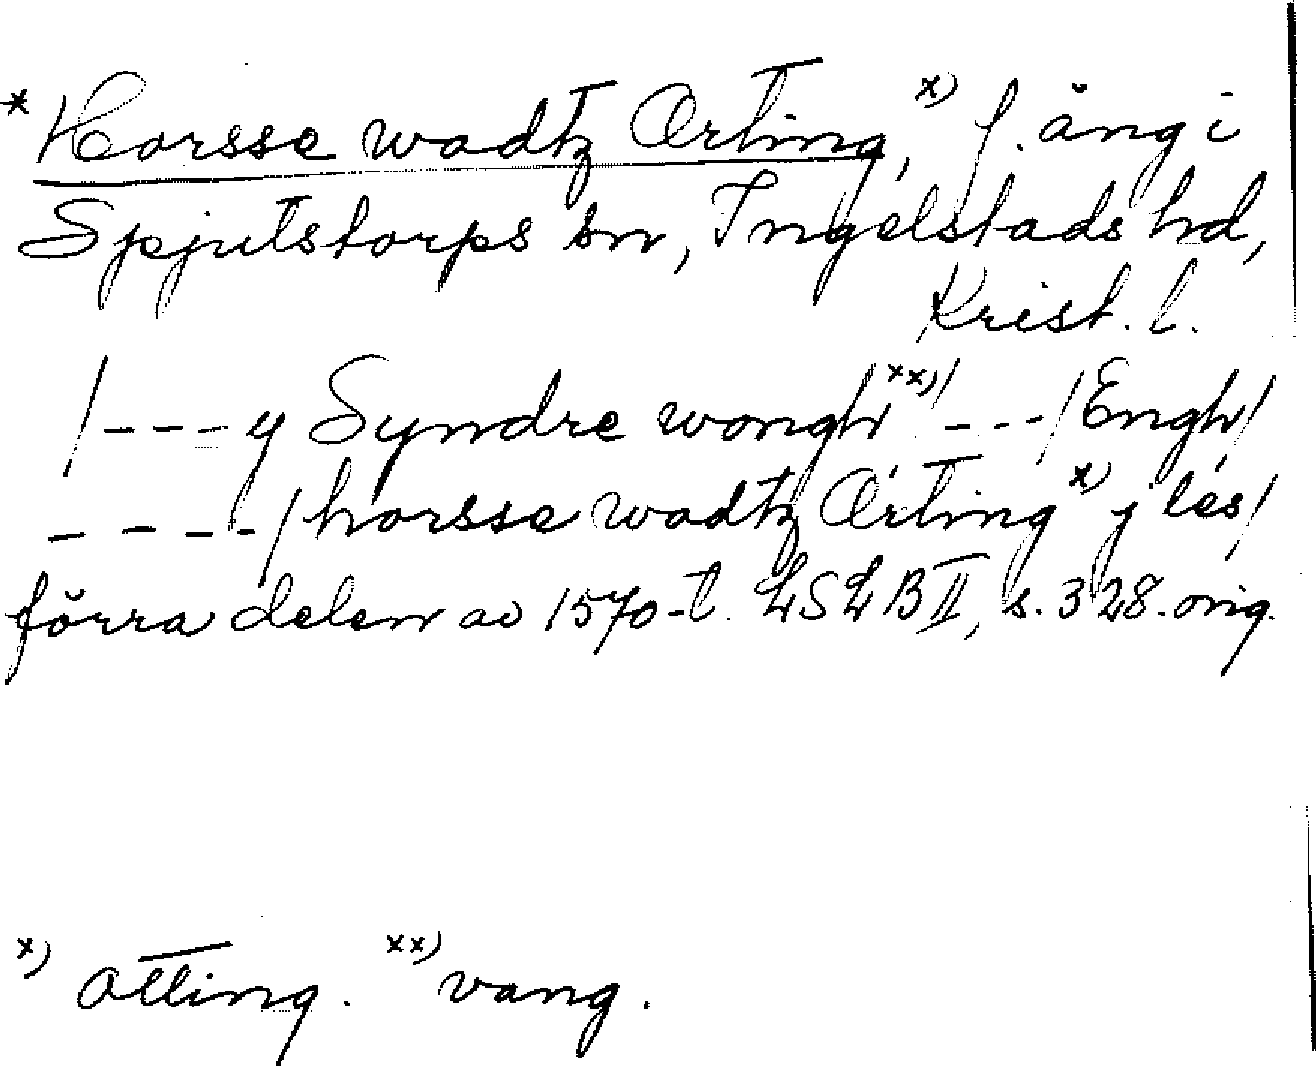 * Horsse wadtz Ørting, x) f. äng i
Spjutstorps sn, Ingelstads hd,
Krist. l.
/---y Syndre wongh xx)/---/Engh/
----/horsse wadtz Ørting x) j lés/
förra delen av 1570-t. LSLB II, s. 328. orig.
x) otting. xx) vang.